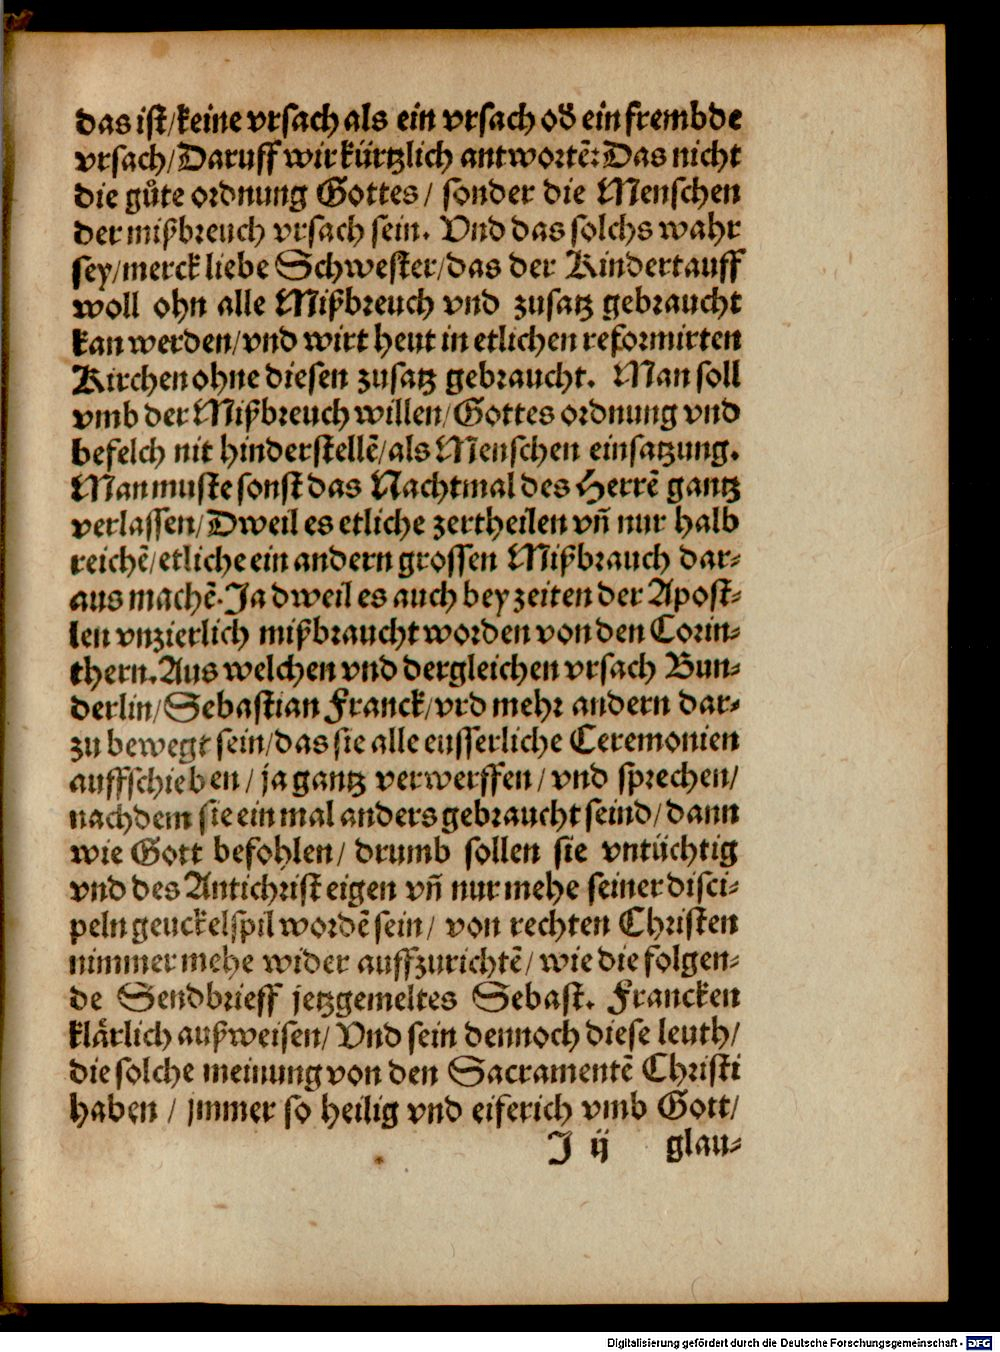 das ist/keine vrsach als ein vrsach oď ein frembde
vrsach/Daruff wir kürtzlich antwortẽ:Das nicht
die gůte ordnung Gottes/ sonder die Menschen
der mißbreuch vrsach sein. Vnd das solchs wahr
sey/merck liebe Schwester/das der Kindertauff
woll ohn alle Mißbreuch vnd zusatz gebraucht
kan werden/vnd wirt heut in etlichen reformirten
Kirchen ohne diesen zusatz gebraucht. Man soll
vmb der Mißbreuch willen/Gottes ordnung vnd
befelch nit hinderstellẽ/als Menschen einsatzung.
Man muste sonst das Nachtmal des Herrẽ gantz
verlassen/Dweil es etliche zertheilen vñ nur halb
reichẽ/etliche ein andern grossen Mißbrauch dar-
aus machẽ.Ja dweil es auch bey zeiten der Apost-
len vnzierlich mißbraucht worden von den Corin-
thern.Aus welchen vnd dergleichen vrsach Bun-
derlin/Sebastian Franck/vrd mehr andern dar-
zu bewegt sein/das sie alle eusserliche Ceremonien
auffschieben/ ja gantz verwerffen/vnd sprechen/
nachdem sie ein mal anders gebraucht seind/dann
wie Gott befohlen/ drumb sollen sie vntüchtig
vnd des Antichrist eigen vñ nur mehe seiner disci-
peln geuckelspil wordẽ sein/ von rechten Christen
nimmer mehe wider auffzurichtẽ/wie die folgen-
de Sendbrieff jetzgemeltes Sebast. Francken
klårlich außweisen/Vnd sein dennoch diese leuth/
die solche meinung von den Sacramentẽ Christi
haben / jmmer so heilig vnd eiferich vmb Gott/
J ij glau-
Digitalisierung gefördert durch die Deutsche Forschungsgemeinschaft - DFG